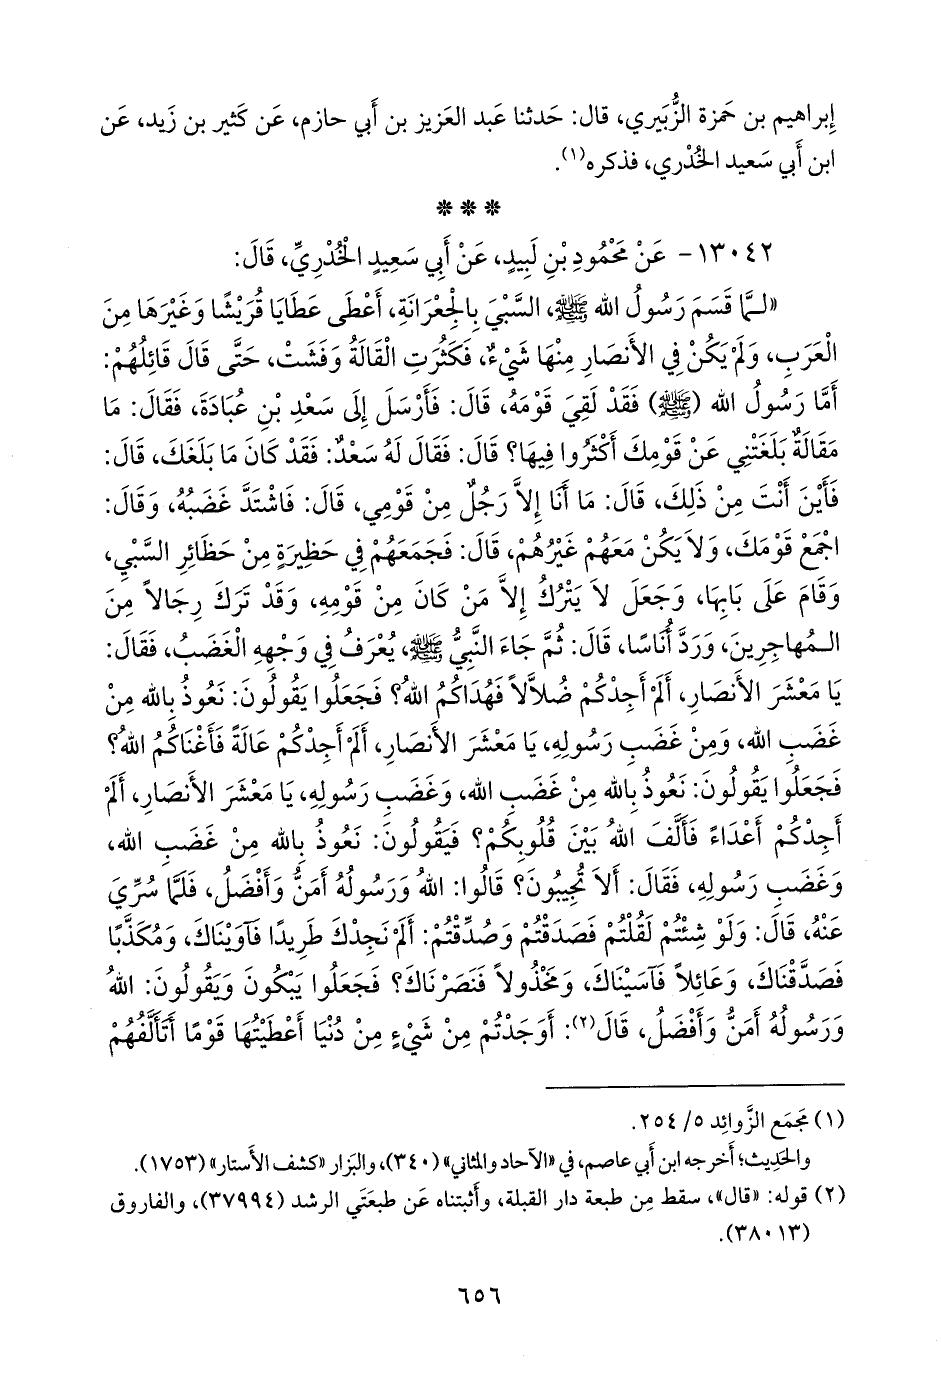 إبراهيم بن حَمزة الزُّبَيري، قال: حَدثنا عَبد العَزيز بن أَبي حازم، عَن كَثير بن زَيد، عَن
ابن أَبي سَعيد الخُدْري، فذكره(١).
* * *
١٣٠٤٢- عَنْ مَحْمُودِ بْنِ لَبِيدٍ، عَنْ أَبِي سَعِيدٍ الْخُدْرِيِّ، قَالَ:
«لَـمَّا قَسَمَ رَسُولُ الله ﷺ، السَّبْيَ بِالْجِعْرَانَةِ، أَعْطَى عَطَايَا قُرَيْشًا وَغَيْرَهَا مِنَ
الْعَرَبِ، وَلَمْ يَكُنْ فِي الأَنْصَارِ مِنْهَا شَيْءٌ، فَكَثُرَتِ الْقَالَةُ وَفَشَتْ، حَتَّى قَالَ قَائِلُهُمْ:
أَمَّا رَسُولُ الله (ﷺ) فَقَدْ لَقِيَ قَوْمَهُ، قَالَ: فَأَرْسَلَ إِلَى سَعْدِ بْنِ عُبَادَةَ، فَقَالَ: مَا
مَقَالَةٌ بَلَغَتْنِي عَنْ قَوْمِكَ أَكْثَرُوا فِيهَا؟ قَالَ: فَقَالَ لَهُ سَعْدٌ: فَقَدْ كَانَ مَا بَلَغَكَ، قَالَ:
فَأَيْنَ أَنْتَ مِنْ ذَلِكَ، قَالَ: مَا أَنَا إِلاَّ رَجُلٌ مِنْ قَوْمِي، قَالَ: فَاشْتَدَّ غَضَبُهُ، وَقَالَ:
اجْمَعْ قَوْمَكَ، وَلاَ يَكُنْ مَعَهُمْ غَيْرُهُمْ، قَالَ: فَجَمَعَهُمْ فِي حَظِيرَةٍ مِنْ حَظَائِرِ السَّبْيِ،
وَقَامَ عَلَى بَابِهَا، وَجَعَلَ لاَ يَتْرُكُ إِلاَّ مَنْ كَانَ مِنْ قَوْمِهِ، وَقَدْ تَرَكَ رِجَالاً مِنَ
الـمُهَاجِرِينَ، وَرَدَّ أُنَاسًا، قَالَ: ثُمَّ جَاءَ النَّبِيُّ ﷺ، يُعْرَفُ فِي وَجْهِهِ الْغَضَبُ، فَقَالَ:
يَا مَعْشَرَ الأَنْصَارِ، أَلَمْ أَجِدْكُمْ ضُلاَّلاً فَهَدَاكُمُ اللهُ؟ فَجَعَلُوا يَقُولُونَ: نَعُوذُ بِالله مِنْ
غَضَبِ الله، وَمِنْ غَضَبِ رَسُولِهِ، يَا مَعْشَرَ الأَنْصَارِ، أَلَمْ أَجِدْكُمْ عَالَةً فَأَغْنَاكُمُ اللهُ؟
فَجَعَلُوا يَقُولُونَ: نَعُوذُ بِالله مِنْ غَضَبِ الله، وَغَضَبِ رَسُولِهِ، يَا مَعْشَرَ الأَنْصَارِ، أَلَمْ
أَجِدْكُمْ أَعْدَاءً فَأَلَّفَ اللهُ بَيْنَ قُلُوبِكُمْ؟ فَيَقُولُونَ: نَعُوذُ بِالله مِنْ غَضَبِ الله،
وَغَضَبِ رَسُولِهِ، فَقَالَ: أَلاَ تُجِيبُونَ؟ قَالُوا: اللهُ وَرَسُولُهُ أَمَنُّ وَأَفْضَلُ، فَلَمَّا سُرِّيَ
عَنْهُ، قَالَ: وَلَوْ شِئْتُمْ لَقُلْتُمْ فَصَدَقْتُمْ وَصُدِّقْتُمْ: أَلَمْ نَجِدْكَ طَرِيدًا فَآوَيْنَاكَ، وَمُكَذَّبًا
فَصَدَّقْنَاكَ، وَعَائِلاً فَآسَيْنَاكَ، وَمَخْذُولاً فَنَصَرْنَاكَ؟ فَجَعَلُوا يَبْكُونَ وَيَقُولُونَ: اللهُ
وَرَسُولُهُ أَمَنُّ وَأَفْضَلُ، قَالَ(٢): أَوَجَدْتُمْ مِنْ شَيْءٍ مِنْ دُنْيَا أَعْطَيْتُهَا قَوْمًا أَتَأَلَّفُهُمْ
(١) مَجمَع الزَّوائِد ٥/ ٢٥٤.
والحَدِيث؛ أخرجه ابن أَبي عاصم، في «الآحاد والمثاني» (٣٤٠)، والبَزار «كشف الأَستار» (١٧٥٣).
(٢) قوله: «قال»، سقط مِن طبعة دار القبلة، وأَثبتناه عَن طبعَتَي الرشد (٣٧٩٩٤)، والفاروق
(٣٨٠١٣).
٦٥٦